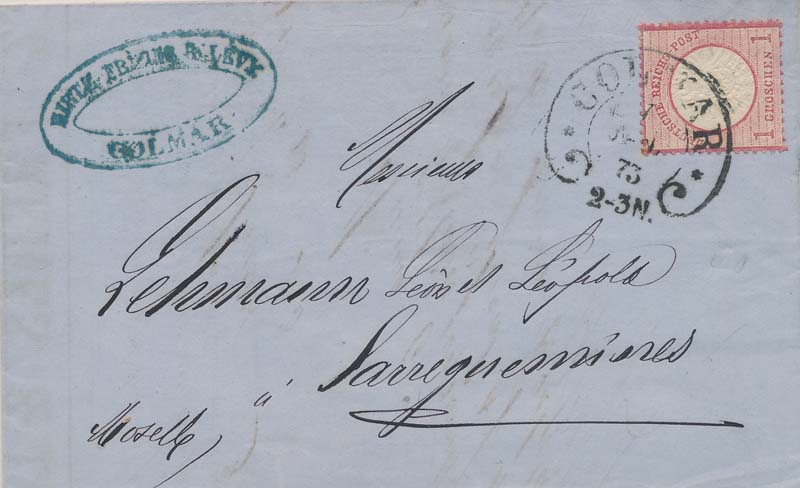 FRÈRES & LEVY
COLMAR
DEUTSCHE REICHS-POST
1 GROSCHEN 1
COLMAR
73
2-3N.
Messieurs
Lehmann Léon et Léopold
à Sarreguemines
Moselle